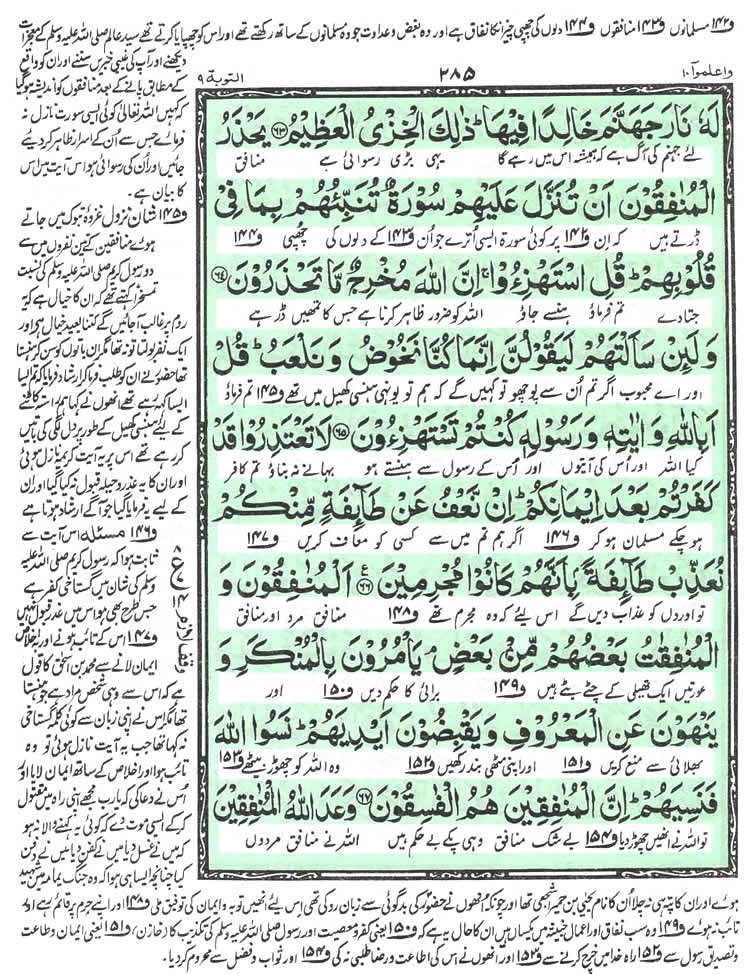 و۱۴۲ مسلمانوں و۱۴۳ منافقوں و۱۴۴ دلوں کی چھپی چیز انکا نفاق ہے اور وہ بغض و عداوت جو وہ مسلمانوں کے ساتھ رکھتے تھے اور اس کو چھپایا کرتے تھے سید عالم صلی اللہ علیہ وسلم کے معجزات
واعلموآ ۱۰
۲۸۵
التوبة ۹
لَهٗ نَارَ جَهَنَّمَ خَالِدًا فِيْهَا ؕ ذٰلِكَ الْخِزْىُ الْعَظِيْمُ ﴿۶۳﴾ يَحْذَرُ
لئے جہنم کی آگ ہے کہ ہمیشہ اس میں رہے گا یہی بڑی رسوائی ہے منافق
الْمُنٰفِقُوْنَ اَنْ تُنَزَّلَ عَلَيْهِمْ سُوْرَةٌ تُنَبِّئُهُمْ بِمَا فِىْ
ڈرتے ہیں کہ ان و۱۴۲ پر کوئی سورۃ ایسی اُترے جو اُن و۱۴۳ کے دلوں کی چھپی و۱۴۴
قُلُوْبِهِمْ ؕ قُلِ اسْتَهْزِءُوْا ۚ اِنَّ اللّٰهَ مُخْرِجٌ مَّا تَحْذَرُوْنَ ﴿۶۴﴾
جتادے تم فرماؤ ہنسے جاؤ اللہ کو ضرور ظاہر کرنا ہے جس کا تمھیں ڈر ہے
وَلَئِنْ سَاَلْتَهُمْ لَيَقُوْلُنَّ اِنَّمَا كُنَّا نَخُوْضُ وَنَلْعَبُ ؕ قُلْ
اور اے محبوب اگر تم اُن سے پوچھو تو کہیں گے کہ ہم تو یونہی ہنسی کھیل میں تھے و۱۴۵ تم فرماؤ
اَبِاللّٰهِ وَاٰيٰتِهٖ وَرَسُوْلِهٖ كُنْتُمْ تَسْتَهْزِءُوْنَ ﴿۶۵﴾ لَا تَعْتَذِرُوْا قَدْ
کیا اللہ اور اُس کی آیتوں اور اُس کے رسول سے ہنستے ہو بہانے نہ بناؤ تم کافر
كَفَرْتُمْ بَعْدَ اِيْمَانِكُمْ ؕ اِنْ نَّعْفُ عَنْ طَآئِفَةٍ مِّنْكُمْ
ہو چکے مسلمان ہو کر و۱۴۶ اگر ہم تم میں سے کسی کو معاف کریں و۱۴۷
نُعَذِّبْ طَآئِفَةًۢ بِاَنَّهُمْ كَانُوْا مُجْرِمِيْنَ ﴿۶۶﴾ اَلْمُنٰفِقُوْنَ وَ
تو اوروں کو عذاب دیں گے اس لیے کہ وہ مجرم تھے و۱۴۸ منافق مرد اور منافق
الْمُنٰفِقٰتُ بَعْضُهُمْ مِّنْۢ بَعْضٍ ۘ يَاْمُرُوْنَ بِالْمُنْكَرِ وَ
عورتیں ایک تھیلی کے چٹے بٹے ہیں و۱۴۹ برائی کا حکم دیں و۱۵۰ اور
يَنْهَوْنَ عَنِ الْمَعْرُوْفِ وَيَقْبِضُوْنَ اَيْدِيَهُمْ ؕ نَسُوا اللّٰهَ
بھلائی سے منع کریں و۱۵۱ اور اپنی مٹھی بند رکھیں و۱۵۲ وہ اللہ کو چھوڑ بیٹھے و۱۵۳
فَنَسِيَهُمْ ؕ اِنَّ الْمُنٰفِقِيْنَ هُمُ الْفٰسِقُوْنَ ﴿۶۷﴾ وَعَدَ اللّٰهُ الْمُنٰفِقِيْنَ
تو اللہ نے انھیں چھوڑ دیا و۱۵۴ بے شک منافق وہی پکے بے حکم ہیں اللہ نے منافق مردوں
دیکھنے اور آپ کی غیبی خبریں سننے اور ان کو واقع
کے مطابق پانے کے بعد منافقوں کو اندیشہ ہو گیا
کہ کہیں اللہ تعالیٰ کوئی ایسی سورت نازل نہ
فرمائے جس سے اُن کے اسرار ظاہر کر دیئے
جائیں اور اُن کی رسوائی ہو اس آیت میں اس
کا بیان ہے۔
و۱۴۵ شان نزول غزوۂ تبوک میں جاتے
ہوئے منافقین کے تین نفروں میں سے
دو رسول کریم صلی اللہ علیہ وسلم کی نسبت
تمسخراً کہتے تھے کہ ان کا خیال ہے کہ یہ
روم پر غالب آجائیں گے کتنا بعید خیال ہے اور
ایک نفر بولتا تو نہ تھا مگر ان باتوں کو سن کر ہنستا
تھا حضور نے ان کو طلب فرما کر ارشاد فرمایا کہ تم ایسا
ایسا کہہ رہے تھے انھوں نے کہا ہم راستہ کاٹنے
کے لئے ہنسی کھیل کے طور پر دل لگی کی باتیں
کر رہے تھے اس پر یہ آیت کریمہ نازل ہوئی
اور ان کا یہ عذر و حیلہ قبول نہ کیا گیا اور ان
کے لیے یہ فرمایا گیا جو آگے ارشاد ہوتا ہے
و۱۴۶ مسئلہ اس آیت سے
ثابت ہوا کہ رسول کریم صلی اللہ علیہ
وسلم کی شان میں گستاخی کفر ہے
جس طرح بھی ہو اس میں عذر قبول نہیں
و۱۴۷ اس کے تائب ہونے اور باخلاص
ایمان لانے سے محمد بن اسحٰق کا قول
ہے کہ اس سے وہی شخص مراد ہے جو ہنستا
تھا مگر اس نے اپنی زبان سے کوئی کلمہ گستاخی
نہ کہا تھا جب یہ آیت نازل ہوئی تو وہ
تائب ہوا اور اخلاص کے ساتھ ایمان لایا اور
اُس نے دعا کی کہ یارب مجھے اپنی راہ میں مقتول
کر کے ایسی موت دے کہ کوئی یہ کہنے والا نہ ہو
کہ میں نے غسل دیا میں نے کفن دیا میں نے دفن
کیا چنانچہ ایسا ہی ہوا کہ وہ جنگ یمامہ میں شہید
ہوئے اور ان کا پتہ ہی نہ چلا اُن کا نام یحیٰی بن حمیر اشجعی تھا اور چونکہ انھوں نے حضور کی بدگوئی سے زبان روکی تھی اس لیے انھیں توبہ و ایمان کی توفیق ملی و۱۴۸ اور اپنے جرم پر قائم رہے اور
تائب نہ ہوئے و۱۴۹ وہ سب نفاق اور اعمال خبیثہ میں یکساں ہیں ان کا حال یہ ہے کہ و۱۵۰ یعنی کفر و معصیت اور رسول صلی اللہ علیہ وسلم کی تکذیب کا (خازن) و۱۵۱ یعنی ایمان و طاعت
و تصدیق رسول سے و۱۵۲ راہ خدا میں خرچ کرنے سے و۱۵۳ اور انھوں نے اس کی اطاعت و رضا طلبی نہ کی و۱۵۴ اور ثواب و فضل سے محروم کر دیا۔